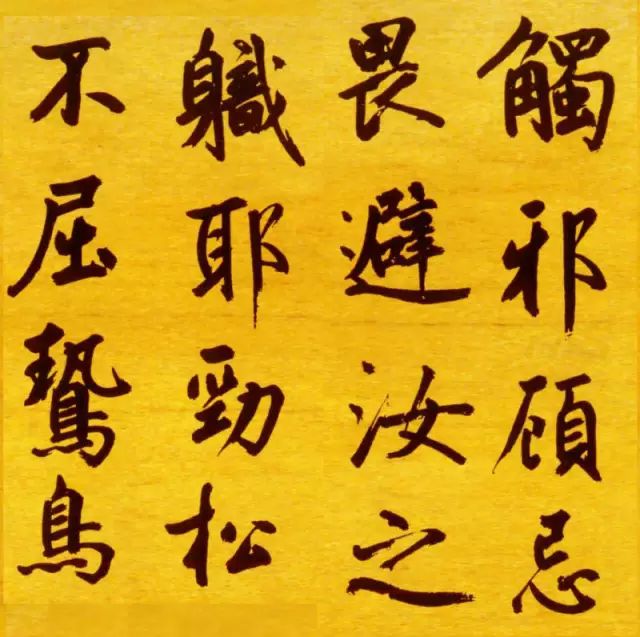 觸邪頋忌
畏避汝之
軄耶勁松
不屈鷙鳥